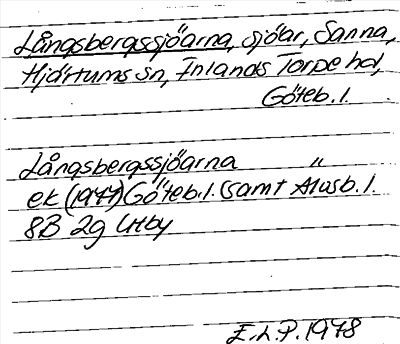 Långsbergssjöarna, sjöar, Sanna,
Hjärtums sn, Inlands Torpe hd,
Göteb. l.
Långsbergssjöarna "
ek (1977) Göteb. l. (samt Älvsb. l.
8B 2g Utby
E.L.P. 1978